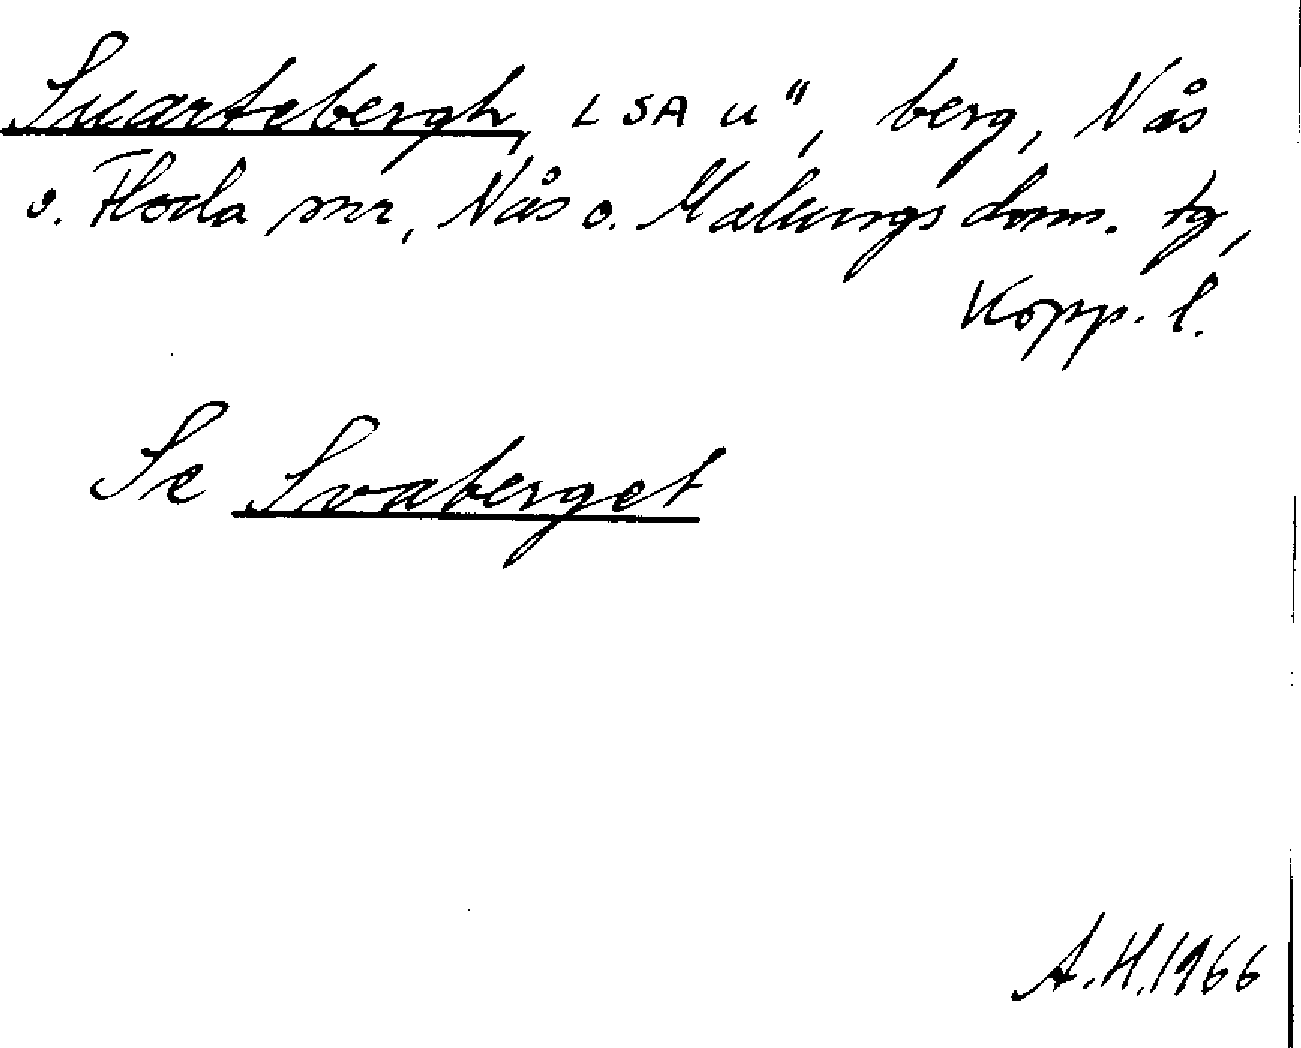 Suartebergh, LSA u", berg, Nås
o. Floda snr, Nås o. Malungs doms. tg,
Kopp. l.
Se Svaberget
A.H.1966